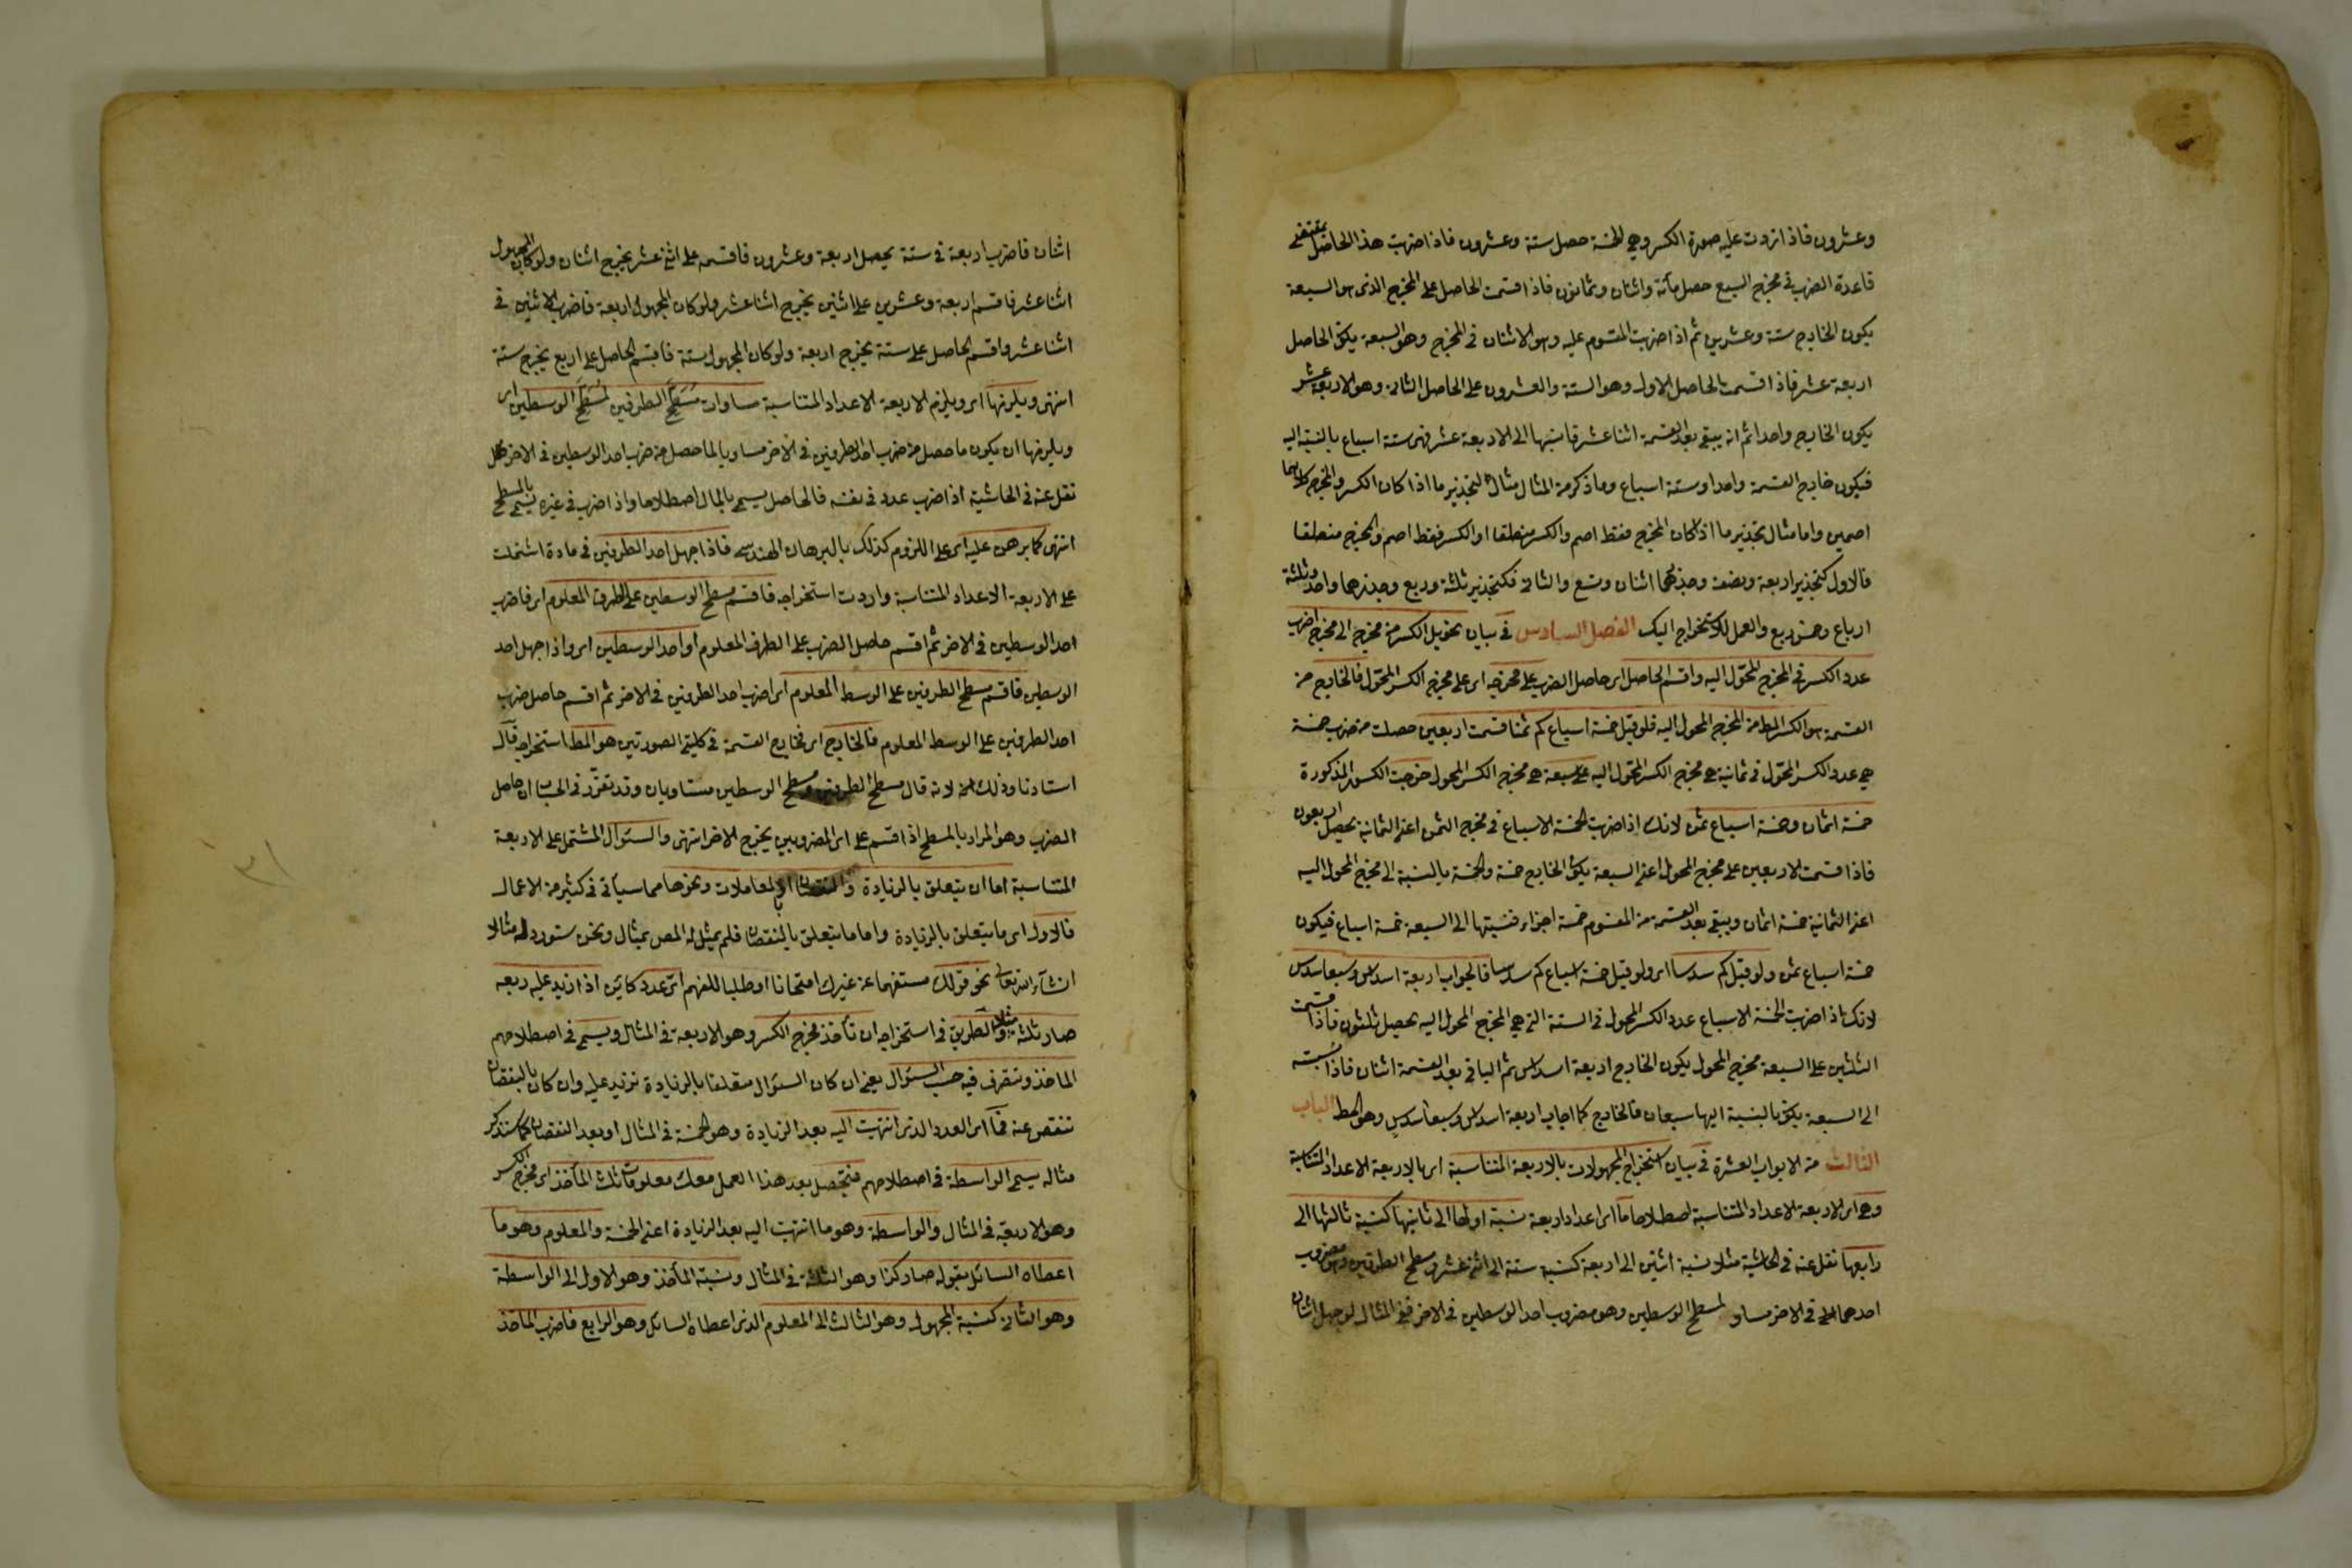 وعشرون فاذا زوت عليه صورة الكسر وهى الخمسة حصل ستة وعشرون فاذا ضربت هذا الحاصل بمقتضى
قاعدة الضرب فى مخرج السبع حصل مأئة واثنان وثمانون فاذا قسمت الحاصل على المخرج الذى هو السبعة
يكون الخارج ستة وعشرين ثم اذا ضربت المقسوم عليه وهو الاثنان فى المخرج وهو السبعة يكن الحاصل
اربعة عشر فاذا قسمت الحاصل الاول وهو الستة والعشرون على الحاصل الثانى وهو الاربعة عشر
يكون الخارج واحدا ثم انه يبقى بعد القسمة اثنا عشر فانسبها الى الاربعة عشر فهى ستة اسباع بالنسبة اليه
فيكون خارج القسمة واحدا وستة اسباع وما ذكر من المثال مثال لتجذير ما اذا كان الكسر والمخرج كلاهما
اصمين واما مثال تجذير ما اذا كان المخرج فقط اصم والكسر منطقا او الكسر فقط اصم والمخرج منطقا
فالاول كتجذير اربعة ونصف وجذرهما اثنان وتسع والثانى فكتجذير ثلثة وربع وجذرها واحد وثلثة
ارباع وخمس ربع والعمل للاستخراج اليك الفصل السادس فى بيان تحويل الكسر من مخرج الى مخرج اضرب
عدد الكسر فى المخرج المحوّل اليه واقسم الحاصل اى حاصل الضرب على مخرجه اى على مخرج الكسر المحوّل فالخارج من
القسمة هو الكسر المط من المخرج المحول اليه فلو قيل خمسة اسباع كم ثمنا قسمت اربعين حصلت من ضرب خمسة
هى عدد الكسر المحوّل فى ثمانية هى مخرج الكسر المحوّل اليه على سبعة هى مخرج الكسر المحول خرجت الكسور المذكورة
خمسة اثمان وخمسة اسباع ثمن لانك اذا ضربت الخمسة الاسباع فى مخرج الثمن اعنى الثمانية يحصل اربعون
فاذا قسمت الاربعين على مخرج المحول اعنى السبعة يكن الخارج خمسة والخمسة بالنسبة الى مخرج المحول اليه
اعنى الثمانية خمسة اثمان ويبقى بعد القسمة من المقسوم خمسة اجزاء فنسبتها الى السبعة خمسة اسباع فيكون
خمسة اسباع ثمن ولو قيل كم سدسا اى ولو قيل خمسة اسباع كم سدسا فالجواب اربعة اسداس وسبعا سدس
لانك اذا ضربت الخمسة الاسباع عدد الكسر المحول فى الستة التى هى المخرج المحول اليه يحصل ثلثون فاذا قسمت
الثلثين على السبعة مخرج المحول يكون الخارج اربعة اسداس ثم الباقى بعد القسمة اثنان فاذا نسبته
الى السبعة يكن بالنسبة اليها سبعان فالخارج كما اجاب اربعة اسداس وسبعا سدس وهو المط الباب
الثالث من الابواب العشرة فى بيان استخراج المجهولات بالاربعة المتناسبة اى بالاربعة الاعداد المتناسبة
وهى اى الاربعة الاعداد المتناسبة اصطلاحا ما اى اعداد اربعة نسبة اولها الى ثانيها كنسبة ثالثها الى
رابعها نقل عنه فى الحاشية مثلا نسبة اثنين الى اربعة كنسبة ستة الى اثنى عشر وسطح الطرفين وهو مضروب
احدهما فى الاخر مساو لمسطح الوسطين وهو مضروب احد الوسطين فى الاخر ففى المثال لو جهل اثنان
اثنان فاضرب اربعة فى ستة يحصل اربعة وعشرون فاقسمه على اثنى عشر يخرج اثنان ولو كان المجهول
اثنا عشر فاقسم اربعة وعشرين على اثنين يخرج اثنا عشر ولو كان المجهول اربعة فاضرب الاثنين فى
اثنا عشر واقسم الحاصل على ستة يخرج اربعة ولو كان المجهول ستة فاقسم الحاصل على اربع يخرج ستة
انتهى ويلزمها اى ويلزم الاربعة الاعداد المتناسبة مساوات مسطح الطرفين لمسطح الوسطين اى
ويلزمها ان يكون ما حصل من ضرب احد الطرفين فى الاخر مساويا لما حصل من ضرب احد الوسطين فى الاخر
نقل عنه فى الحاشية اذا ضرب عدد فى نفسه فالحاصل يسمى بالمال اصطلاحا واذا ضرب فى غيره يسمى بالمسطح
انتهى كما برهن عليه اى على اللزوم كذلك بالبرهان الهندسى فاذا جهل احد الطرفين فى مادة اشتملت
على الاربعة الاعداد المتناسبة واردت استخراجه فاقسم مسطح الوسطين على الطرف المعلوم اى فاضرب
احد الوسطين فى الاخر ثم اقسم حاصل الضرب على الطرف المعلوم او احد الوسطين اى واذا جهل احد
الوسطين فاقسم مسطح الطرفين على الوسط المعلوم اى اضرب احد الطرفين فى الاخر ثم اقسم حاصل ضرب
احد الطرفين على الوسط المعلوم فالخارج اى فخارج القسمة فى كليتى الصورتين هو المط استخراجه قال
استادنا وذلك لانه قال مسطح الطرفين ومسطح الوسطين متساويان وقد تقرّر فى الحساب ان حاصل
الضرب وهو المراد بالمسطح اذا قسم على اى المضروبين يخرج الاخر انتهى والسؤال المشتمل على الاربعة
المتناسبة اما ان يتعلق بالزيادة والنقصان او بالمعاملات ونحوها مما سيأتى فى كثير من الاعمال
فالاول اى ما يتعلق بالزيادة واما ما يتعلق بالنقصان فلم يمثل له المص بمثال ونحن سنورد له مثالا
ان شآء الله تعالى نحو قولك مستفهما عن غيرك امتحانا او طلبا للفهم اى عدد كائن اذا زيد عليه ربعه
صار ثلثة مثلا فالطريق فى استخراجه ان تأخذ مخرج الكسر وهو الاربعة فى المثال ويسمى فى اصطلاحهم
الماخذ وتتصرف فيه حسب السؤال يعنى ان كان السؤال متعلقا بالزيادة تزيد عليه وان كان بالنقصان
تنقص عنه فما اى العدد الذى انتهيت اليه بعد الزيادة وهو الخمسة فى المثال او بعد النقصان كما سنذكر
مثاله يسمى الواسطة فى اصطلاحهم فيحصل بعد هذا العمل معك معلومات ثلث المأخذ اى مخرج الكسر
وهو الاربعة فى المثال والواسطة وهو ما انتهيت اليه بعد الزيادة اعنى الخمسة والمعلوم وهو ما
اعطاه السائل بقوله صار كذا وهو الثلثة فى المثال ونسبة المأخذ وهو الاول الى الواسطة
وهو الثانى كنسبة المجهول وهو الثالث الى المعلوم الذى اعطاه السائل وهو الرابع فاضرب المأخذ
٣١